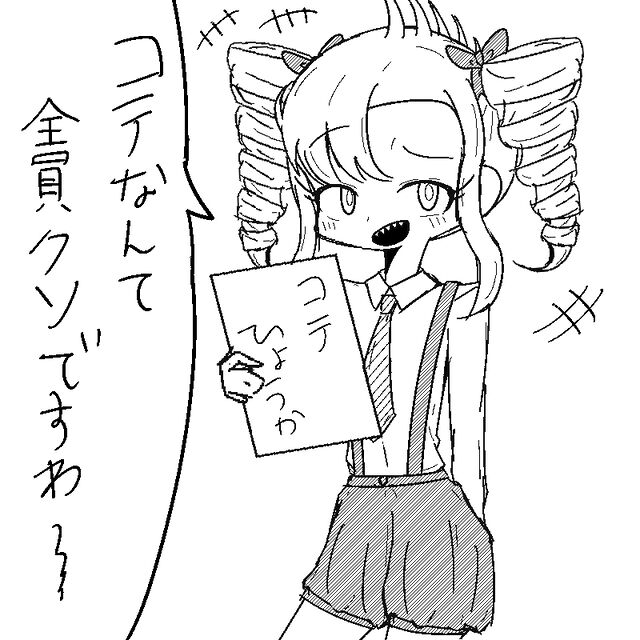 コテなんて
全員クソですわ〜
コテ
ひょうか